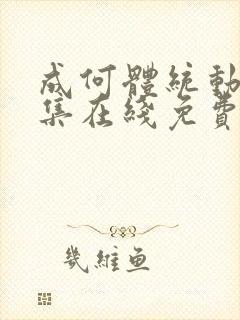 成何體統動
集在綫免費
幾維魚